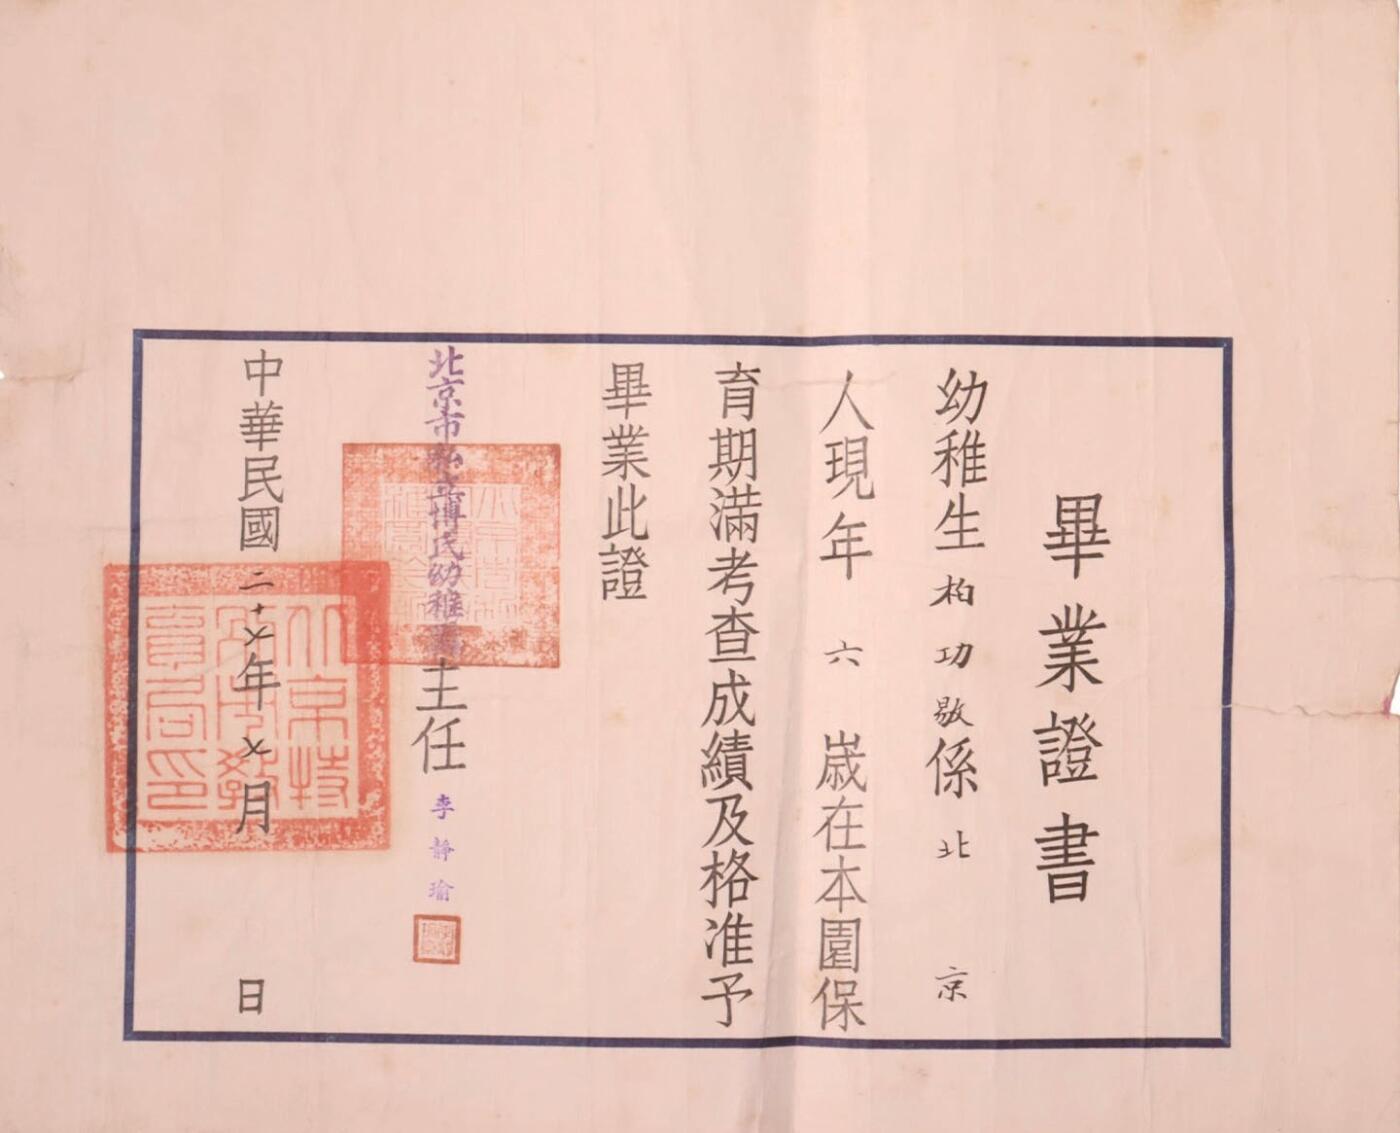 畢業證書
幼稚生柏功敭係北京
人現年六歲在本園保
育期滿考查成績及格准予
畢業此證
北京市私立博氏幼稚園主任李靜瑜
中華民國二十七年七月 日
北京特別市教育局印